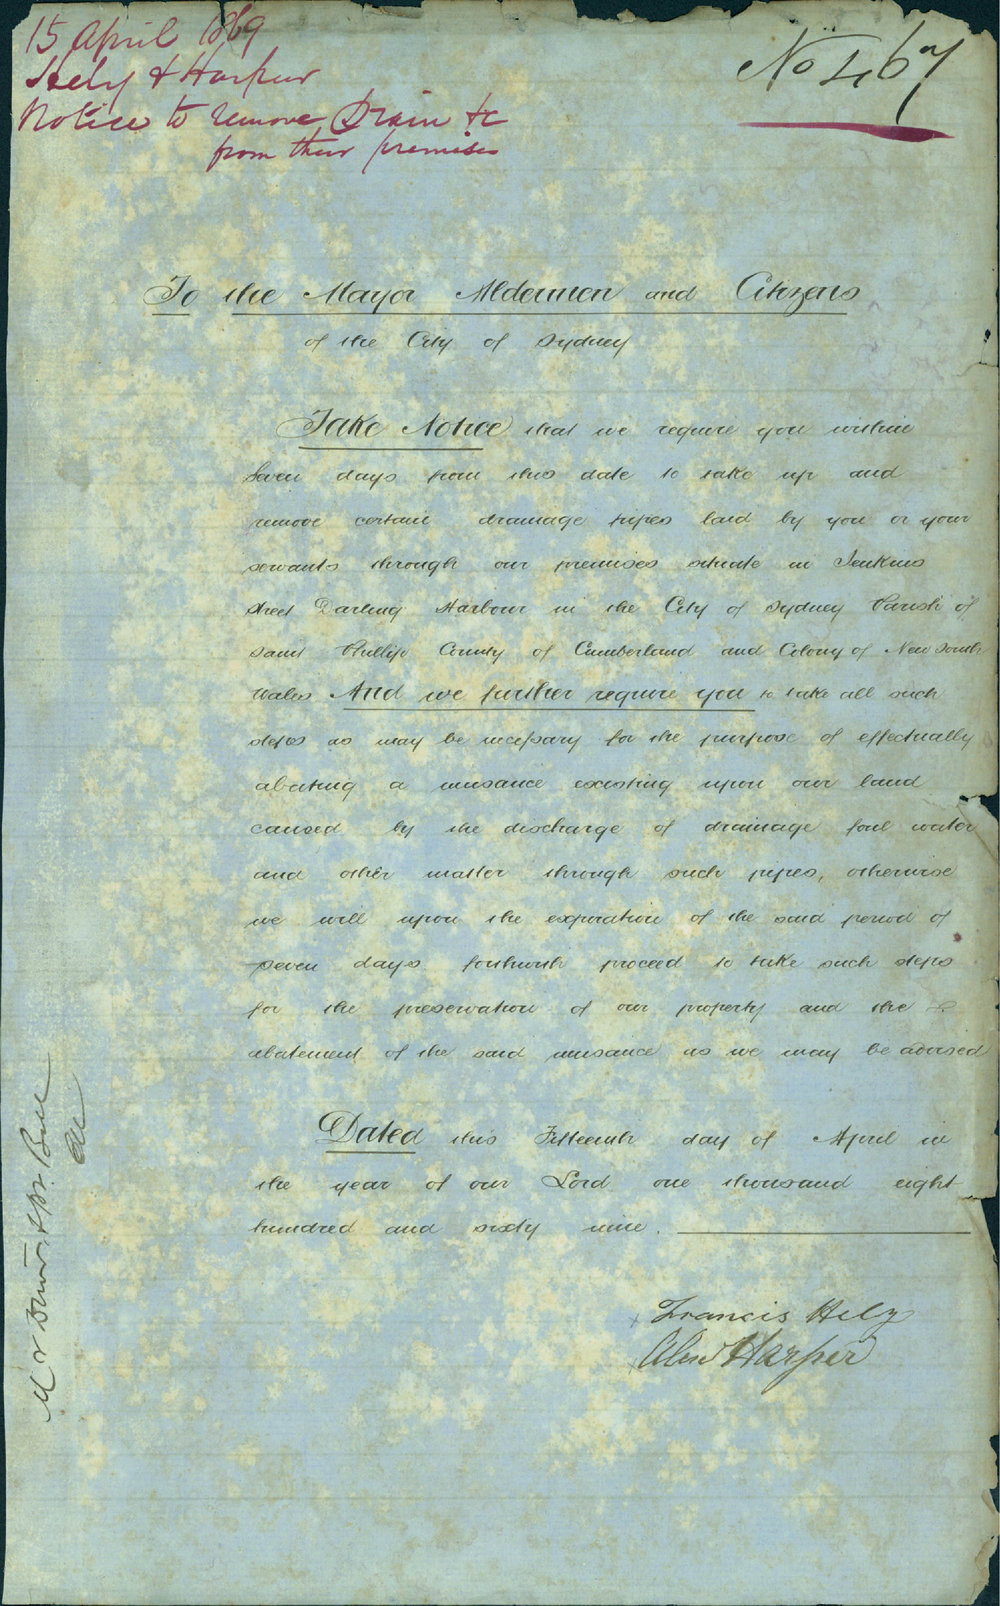 15 April 1869
Hely & Harper
Notice to remove Drain &c
from their premises
No 467
To the Mayor Aldermen and Citizens
of the City of Sydney
Take Notice that we require you within
Seven days from this date to take up and
remove certain drainage pipes laid by you or your
servants through our premises situate in Jenkins
street Darling Harbour in the City of Sydney Parish of
Saint Phillip County of Cumberland and Colony of New South
Wales And we further require you to take all such
steps as may be necessary for the purpose of effectually
abating a nuisance existing upon our land
caused by the discharge of drainage foul water
and other matter through such pipes, otherwise
we will upon the expiration of the said period of
seven days forthwith proceed to take such steps
for the preservation of our property and the
abatement of the said nuisance as we may be advised
Dated this Fifteenth day of April in
the year of our Lord one thousand eight
hundred and sixty nine.
Francis Hely
Alex Harper